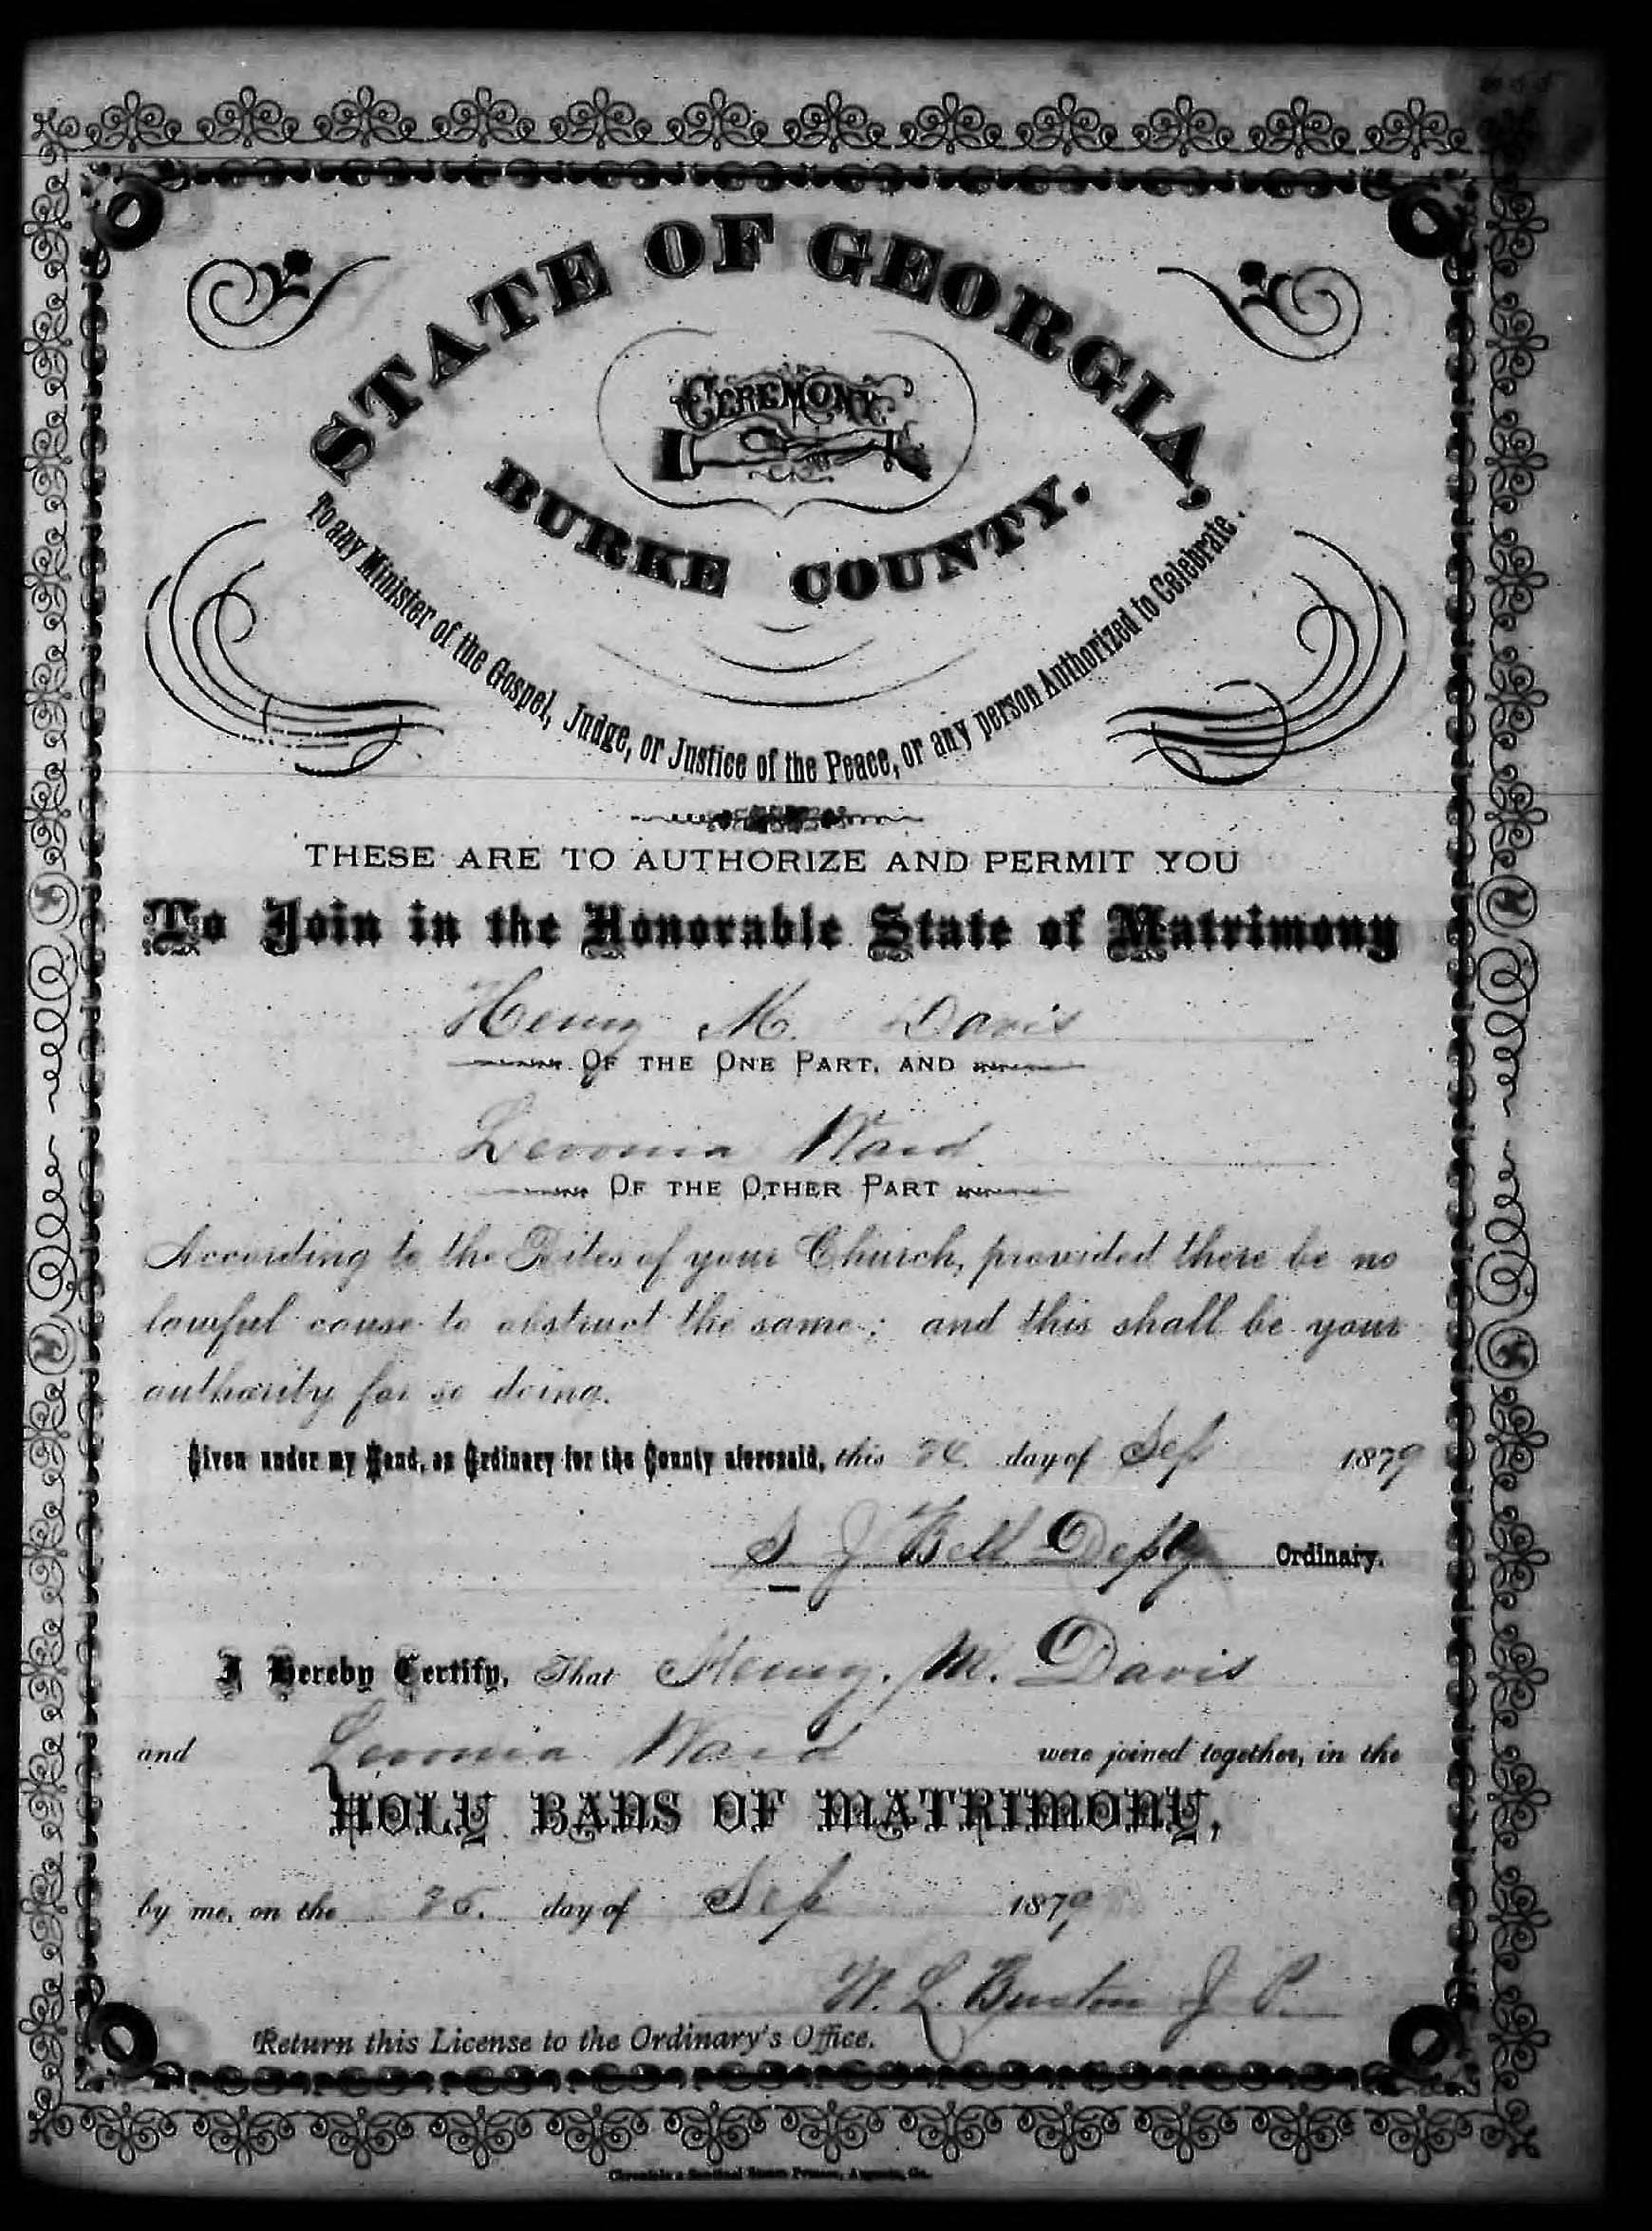 STATE OF GEORGIA,
CEREMONY
BURKE COUNTY.
To any Minister of the Gospel, Judge, or Justice of the Peace, or any person Authorized to Celebrate.
THESE ARE TO AUTHORIZE AND PERMIT YOU
To Join in the Honorable State of Matrimony
Henry M. Davis
OF THE ONE PART, AND
Levonia Ward
OF THE OTHER PART
According to the Rites of your Church, provided there be no
lawful cause to obstruct the same; and this shall be your
authority for so doing.
Given under my Hand, as Ordinary for the County aforesaid, this day of Sep 1879
S J Bell Depty Ordinary.
I Hereby Certify, That Henry. M. Davis
and Levonia Ward were joined together, in the
HOLY BANS OF MATRIMONY,
by me, on the day of Sep 1879
W. L. Burton J P.
Return this License to the Ordinary's Office.
Chronicle & Sentinel Steam Presses, Augusta, Ga.